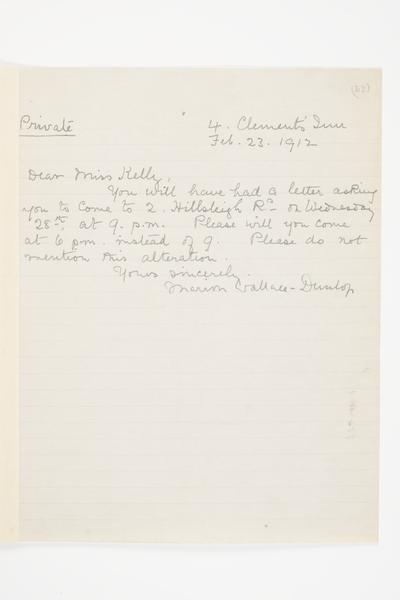 (22)
Private
4. Clements Inn
Feb. 23. 1912
Dear Miss Kelly,
You will have had a letter asking
you to come to 2. Hillsleigh Rd. on Wednesday
28th, at 9. p.m. Please will you come
at 6 p.m. instead of 9. Please do not
mention this alteration.
Yours sincerely.
Marion Wallace-Dunlop